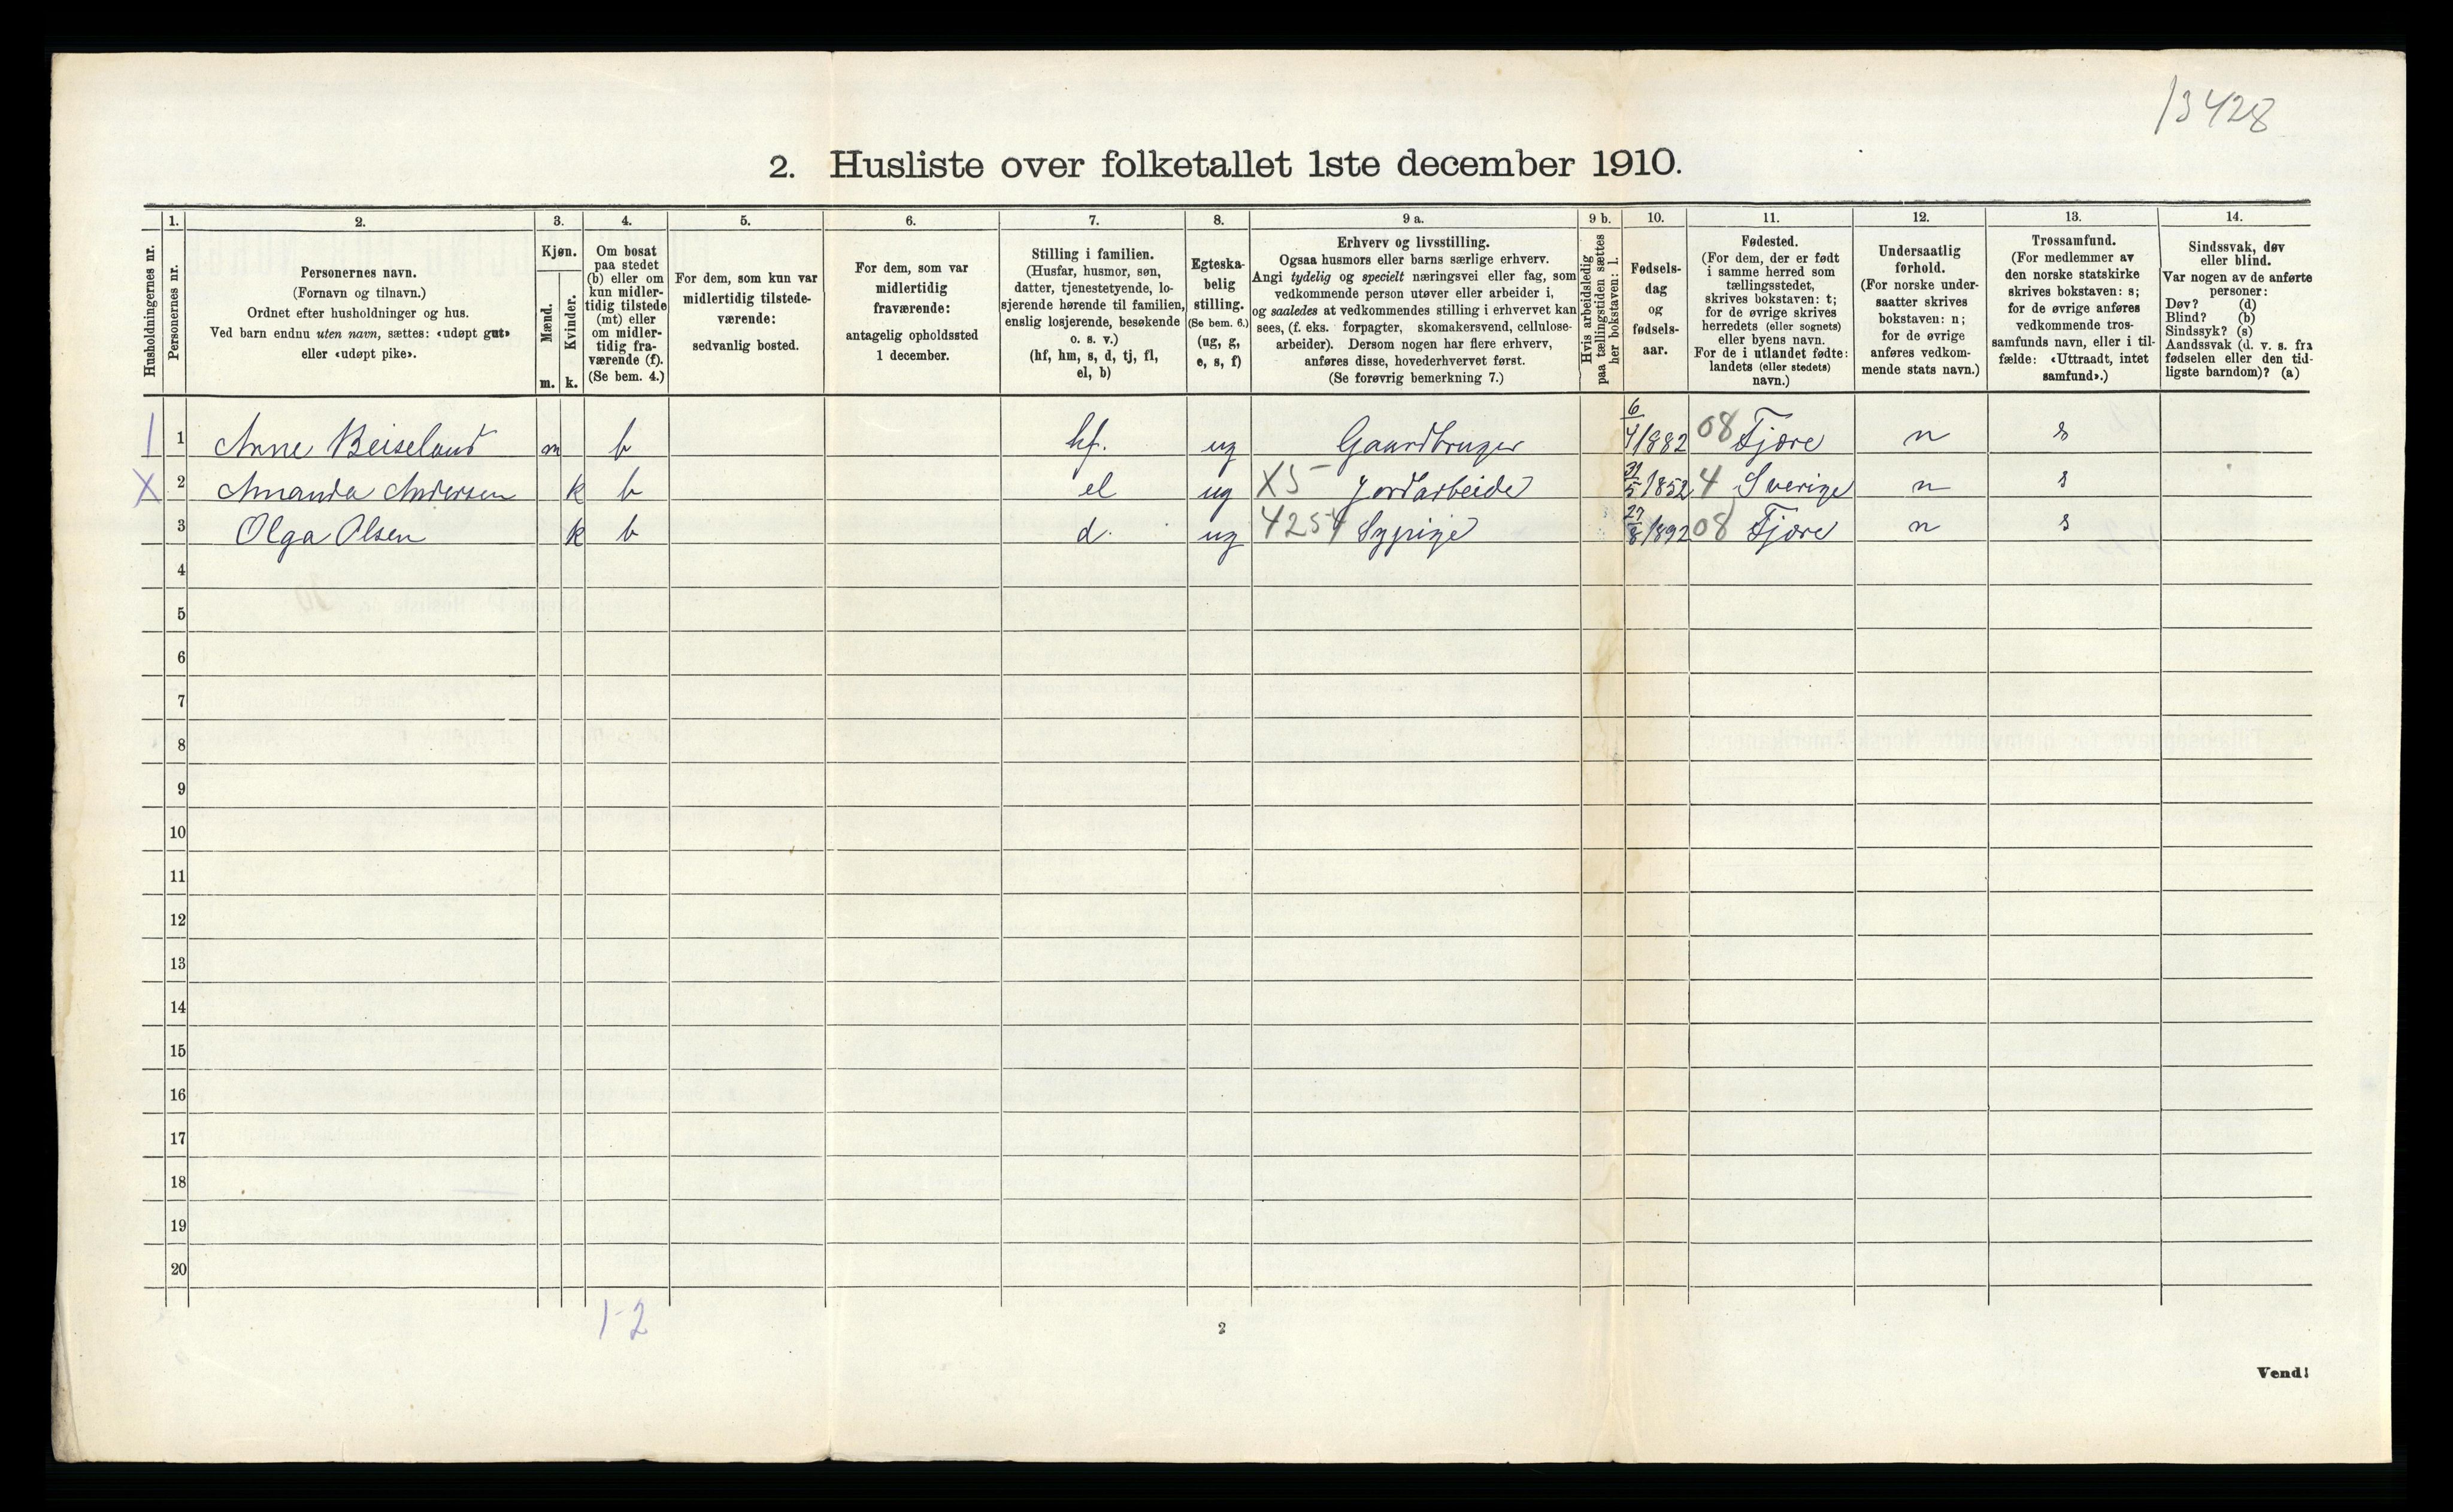 13428
2. Husliste over folketallet 1ste december 1910.
Husholdningernes nr.
1.
Personernes nr.
2.
Personernes navn.
(Fornavn og tilnavn.)
Ordnet efter husholdninger og hus.
Ved barn endnu uten navn, sættes: «udøpt gut»
eller «udøpt pike».
3.
Kjøn.
Mænd.
Kvinder.
m.
k.
4.
Om bosat
paa stedet
(b) eller om
kun midler-
tidig tilstede
(mt) eller
om midler-
tidig fra-
værende (f).
(Se bem. 4.)
5.
For dem, som kun var
midlertidig tilstede-
værende:
sedvanlig bosted.
6.
For dem, som var
midlertidig
fraværende:
antagelig opholdssted
1 december.
7.
Stilling i familien.
(Husfar, husmor, søn,
datter, tjenestetyende, lo-
sjerende hørende til familien,
enslig losjerende, besøkende
o. s. v.)
(hf, hm, s, d, tj, fl,
el, b)
8.
Egteska-
belig
stilling.
(Se bem. 6.)
(ug, g,
e, s, f)
9 a.
Erhverv og livsstilling.
Ogsaa husmors eller barns særlige erhverv.
Angi tydelig og specielt næringsvei eller fag, som
vedkommende person utøver eller arbeider i,
og saaledes at vedkommendes stilling i erhvervet kan
sees, (f. eks. forpagter, skomakersvend, cellulose-
arbeider). Dersom nogen har flere erhverv,
anføres disse, hovederhvervet først.
(Se forøvrig bemerkning 7.)
9 b.
Hvis arbeidsledig
paa tællingstiden sættes
her bokstaven: l.
10.
Fødsels-
dag
og
fødsels-
aar.
11.
Fødested.
(For dem, der er født
i samme herred som
tællingsstedet,
skrives bokstaven: t;
for de øvrige skrives
herredets (eller sognets)
eller byens navn.
For de i utlandet fødte:
landets (eller stedets)
navn.)
12.
Undersaatlig
forhold.
(For norske under-
saatter skrives
bokstaven: n;
for de øvrige
anføres vedkom-
mende stats navn.)
13.
Trossamfund.
(For medlemmer av
den norske statskirke
skrives bokstaven: s;
for de øvrige anføres
vedkommende tros-
samfunds navn, eller i til-
fælde: «Uttraadt, intet
samfund».)
14.
Sindssvak, døv
eller blind.
Var nogen av de anførte
personer:
Døv? (d)
Blind? (b)
Sindssyk? (s)
Aandssvak (d. v. s. fra
fødselen eller den tid-
ligste barndom)? (a)
1 Arne Beiseland m b hf. ug Gaardbruger 6/4 1882 08 Fjære n s
X 2 Amanda Andersen k b el ug X5 Jordarbeide 31/5 1852 4 Sverige n s
3 Olga Olsen k b d. ug 4254 Sypige 27/8 1892 08 Fjære n s
4
5
6
7
8
9
10
11
12
13
14
15
16
17
18
19
20
1-2
2
Vend!